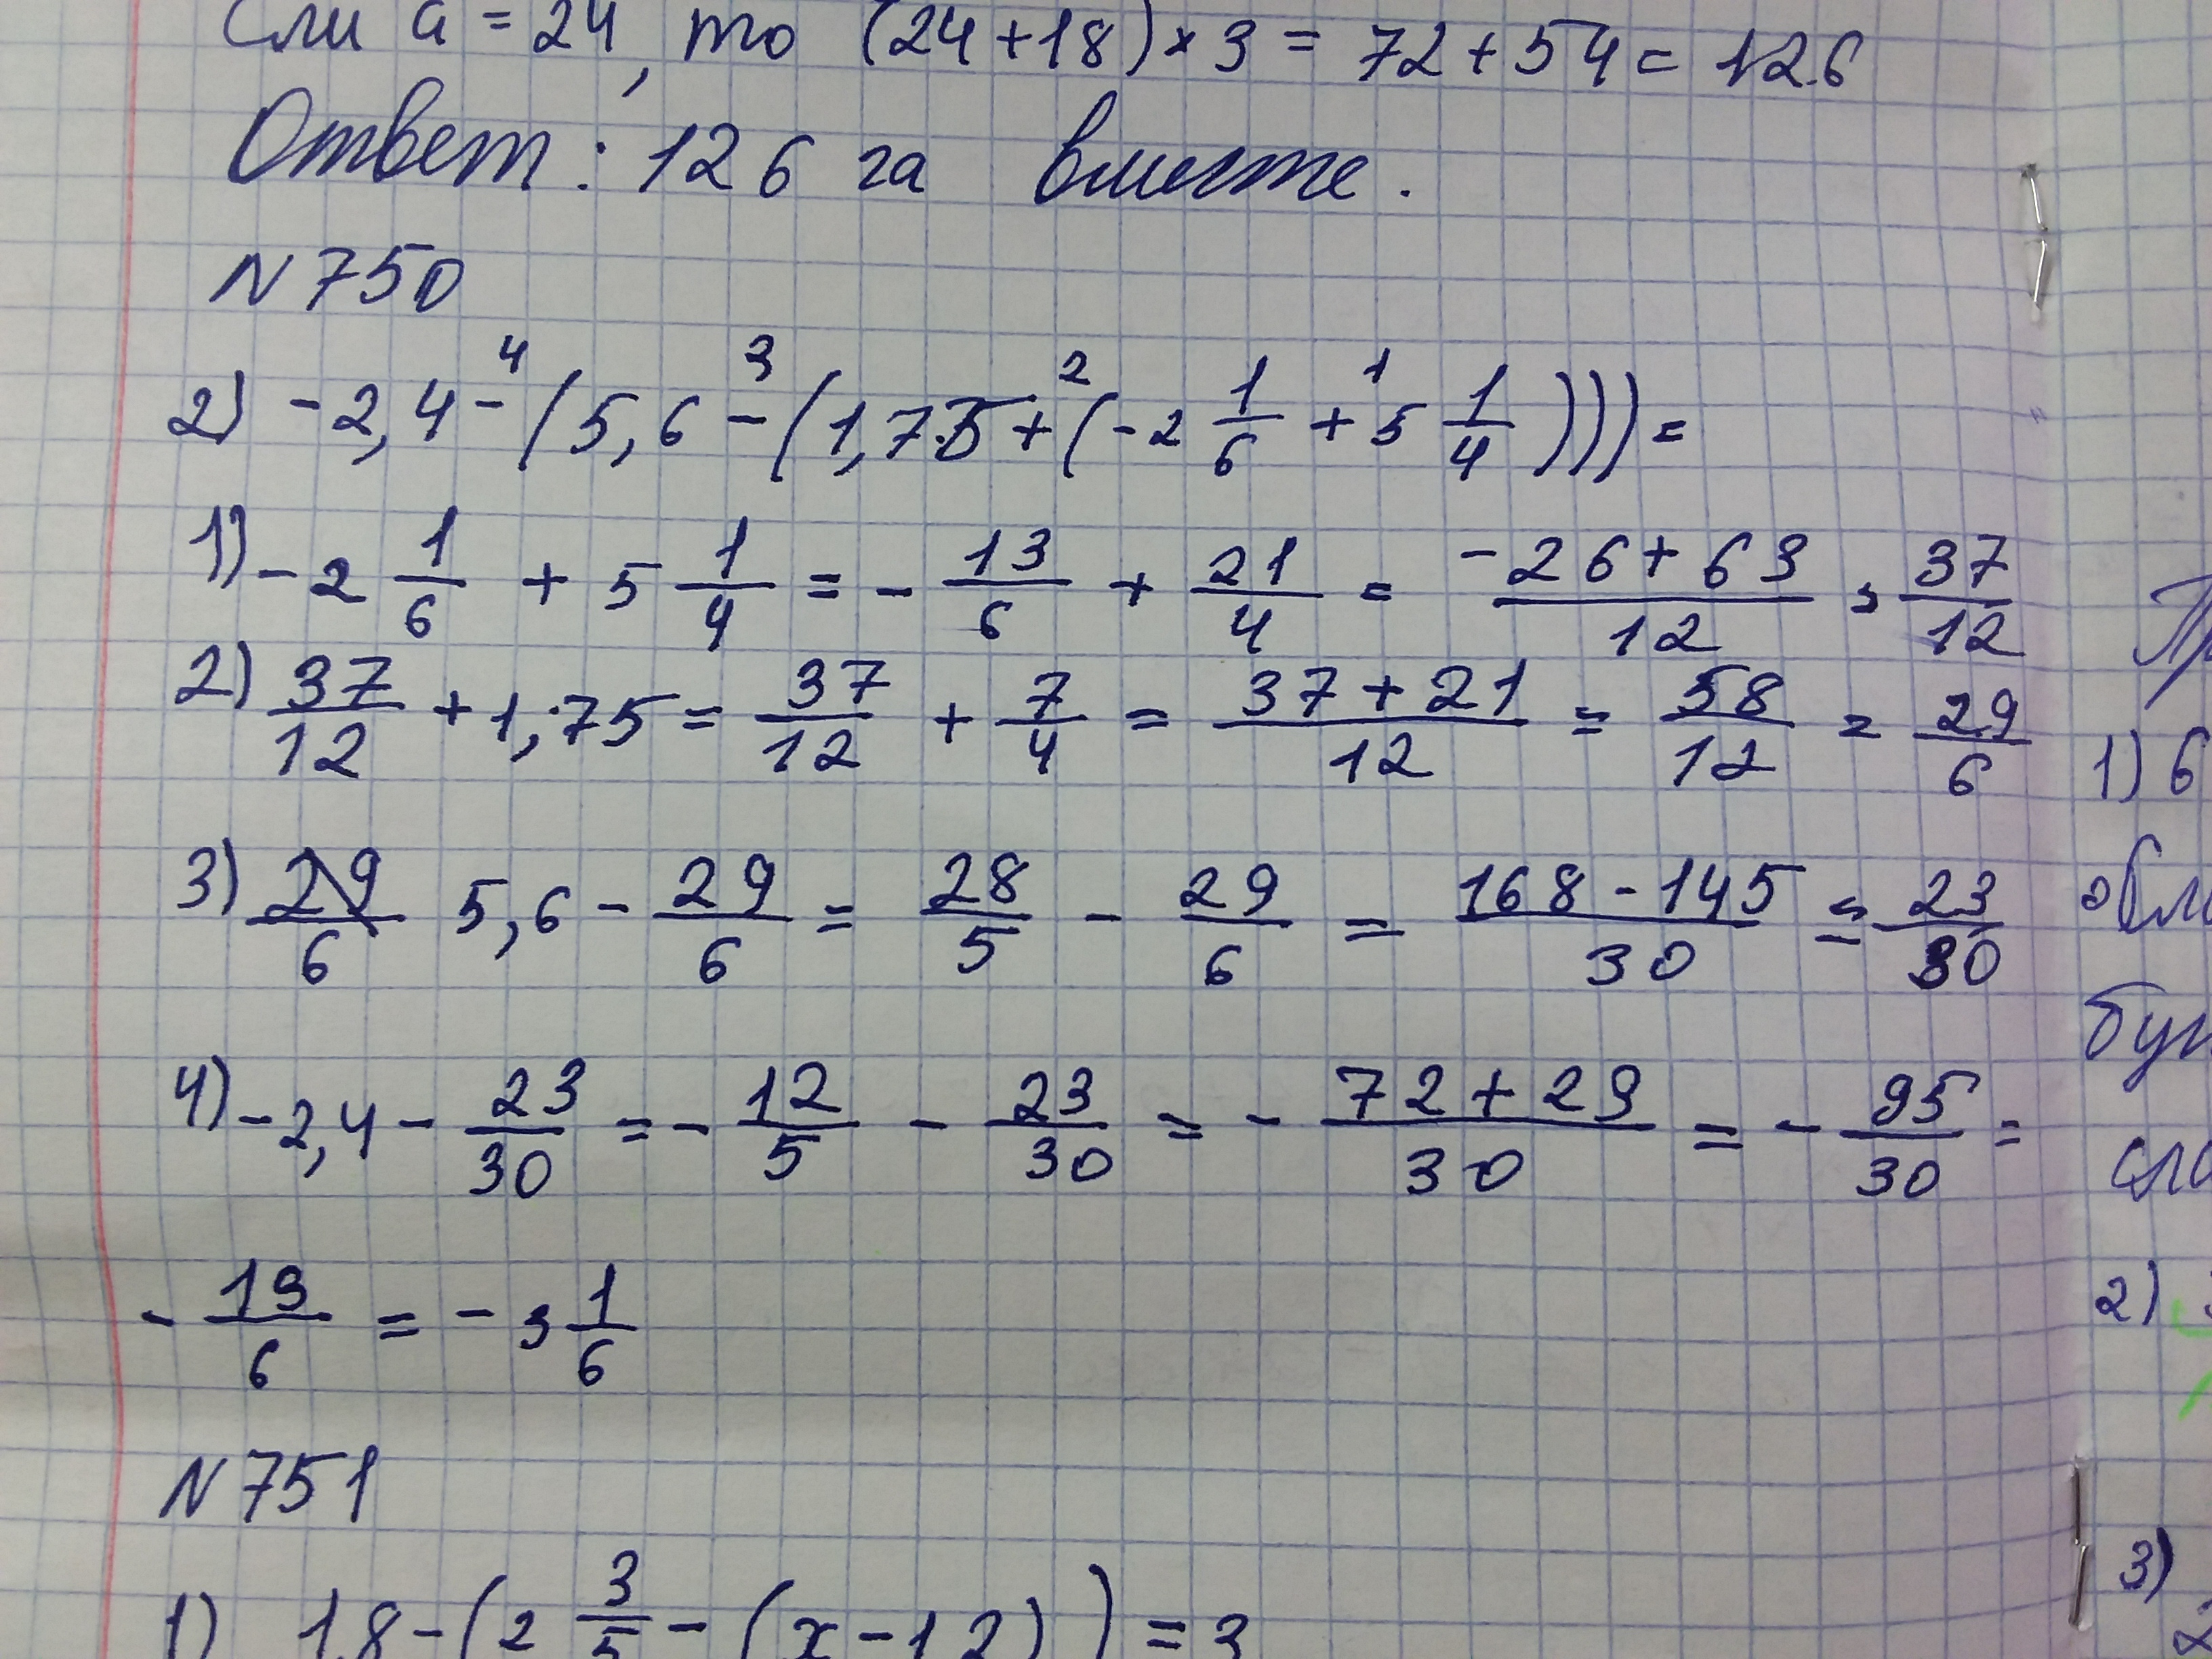 сли a = 24, то (24+18)×3 = 72+54 = 126
Ответ: 126 га вместе.
N 750
2) -2,4 - (5,6 - (1,75 + (-2 1/6 + 5 1/4))) =
4 3 2 1
1) -2 1/6 + 5 1/4 = - 13/6 + 21/4 = (-26+63)/12 = 37/12
2) 37/12 + 1,75 = 37/12 + 7/4 = (37+21)/12 = 58/12 = 29/6
3) 29/6 5,6 - 29/6 = 28/5 - 29/6 = (168-145)/30 = 23/30
4) -2,4 - 23/30 = - 12/5 - 23/30 = - (72+23)/30 = - 95/30 =
- 19/6 = -3 1/6
N 751
1) 1,8 - (2 3/5 - (x-1,2)) = 3
1) 6
2)
3)
2